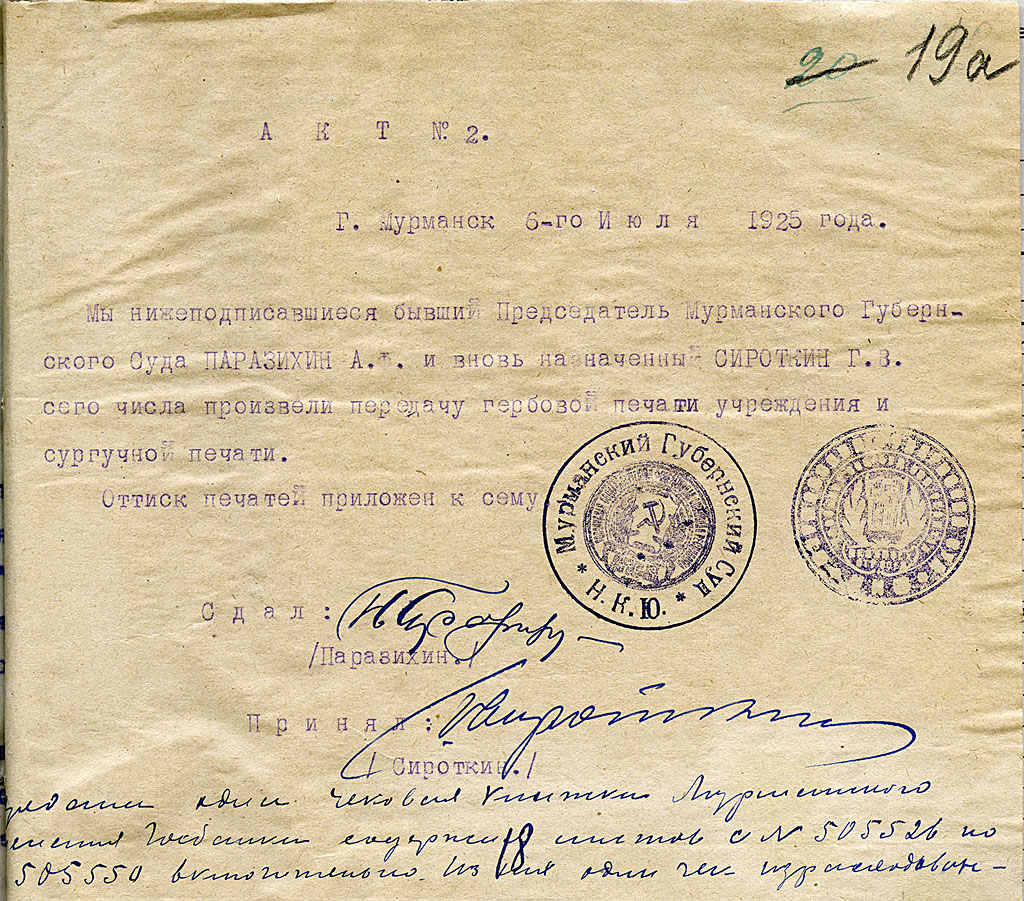 20 19а
А К Т № 2.
Г. Мурманск 6-го И ю л я 1925 года.
Мы нижеподписавшиеся бывший Председатель Мурманского Губерн-
ского Суда ПАРАЗИХИН А.Ф. и вновь назначенный СИРОТКИН Г.В.
сего числа произвели передачу гербовой печати учреждения и
сургучной печати.
Оттиск печатей приложен к сему
Мурманский Губернский Суд
* Н.К.Ю. *
С д а л :
/Паразихин./
П р и н я л :
/ Сироткин./
одна чековая книжка Мурманского
Госбанка содержит 18 листов с N 505526 по
505550 включительно. Из них один чек израсходован-